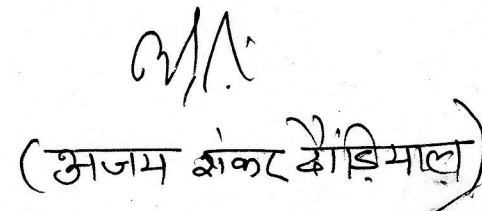 (अजय शंकर ढौंड़ियाल)